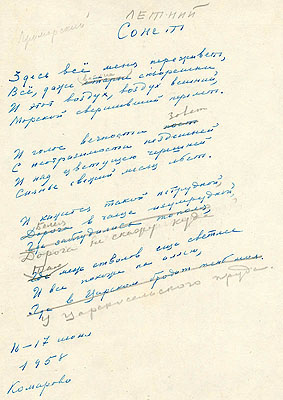 Приморский ЛЕТНИЙ
Сонет
Здесь всё меня переживет,
Всё, даже ветхие скворешни
И этот воздух, воздух вешний,
Морской свершивший перелет.
И голос вечности зовет
С неотразимостью нездешней
И над цветущею черешней
Сиянье месяц льет.
И кажется такой нетрудной,
Белея
Дорога в чаще изумрудной,
Дорога не скажу куда
Там
меж стволов еще светлее
И все похоже на аллею
Что в Царском
У царскосельского пруда.
16–17 июня
1958
Комарово